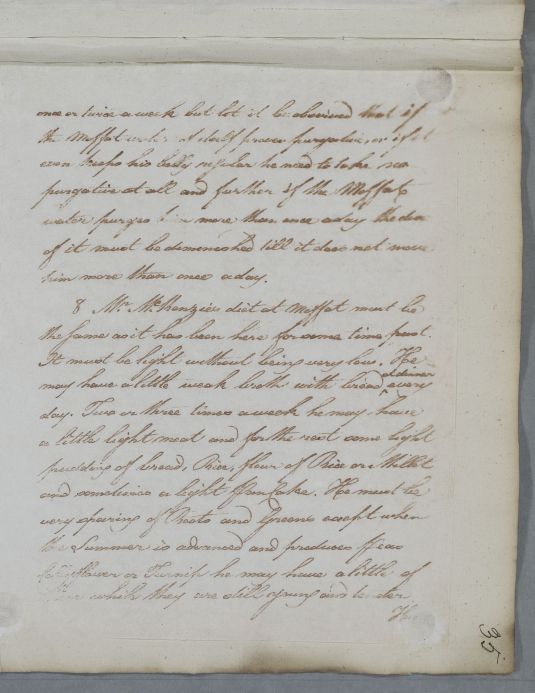 once or twice a week but let it be observed that if
the Moffat water itself proves purgative, or if it
even keeps his belly regular he need to take no
purgative at all and further if the Moffat
water purges him more than once a day the dose
of it must be demenished till it does not move
him more than once a day.
8 Mr. McKenzies diet at Moffat must be
the same as it has been here for some time past.
It must be light without being very low. He
may have a little weak broth with bread at dinner every
day. Two or three times a week he may have
a little light meat and for the rest some light
pudding of bread, Rice, flour of Rice or Millet
and sometimes a light Pancake. He must be
very sparing of Roots and Greens except when
the Summer is advanced and produces Peas
or Turnip he may have a little of
while they are still young and tender
35